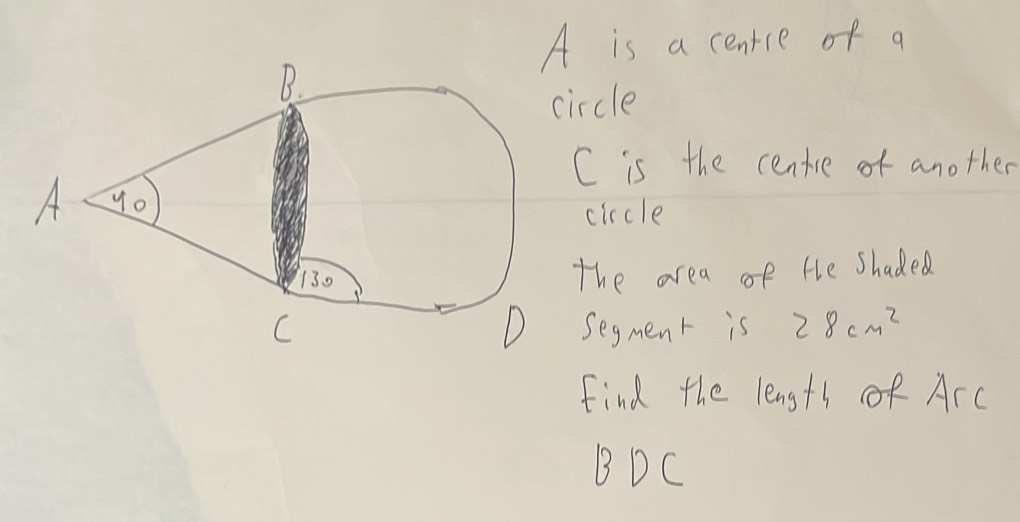 A is a centre of a
circle
C is the centre of another
circle
The area of the shaded
segment is 28cm²
find the length of Arc
BDC
B.
A
40
130
C
D